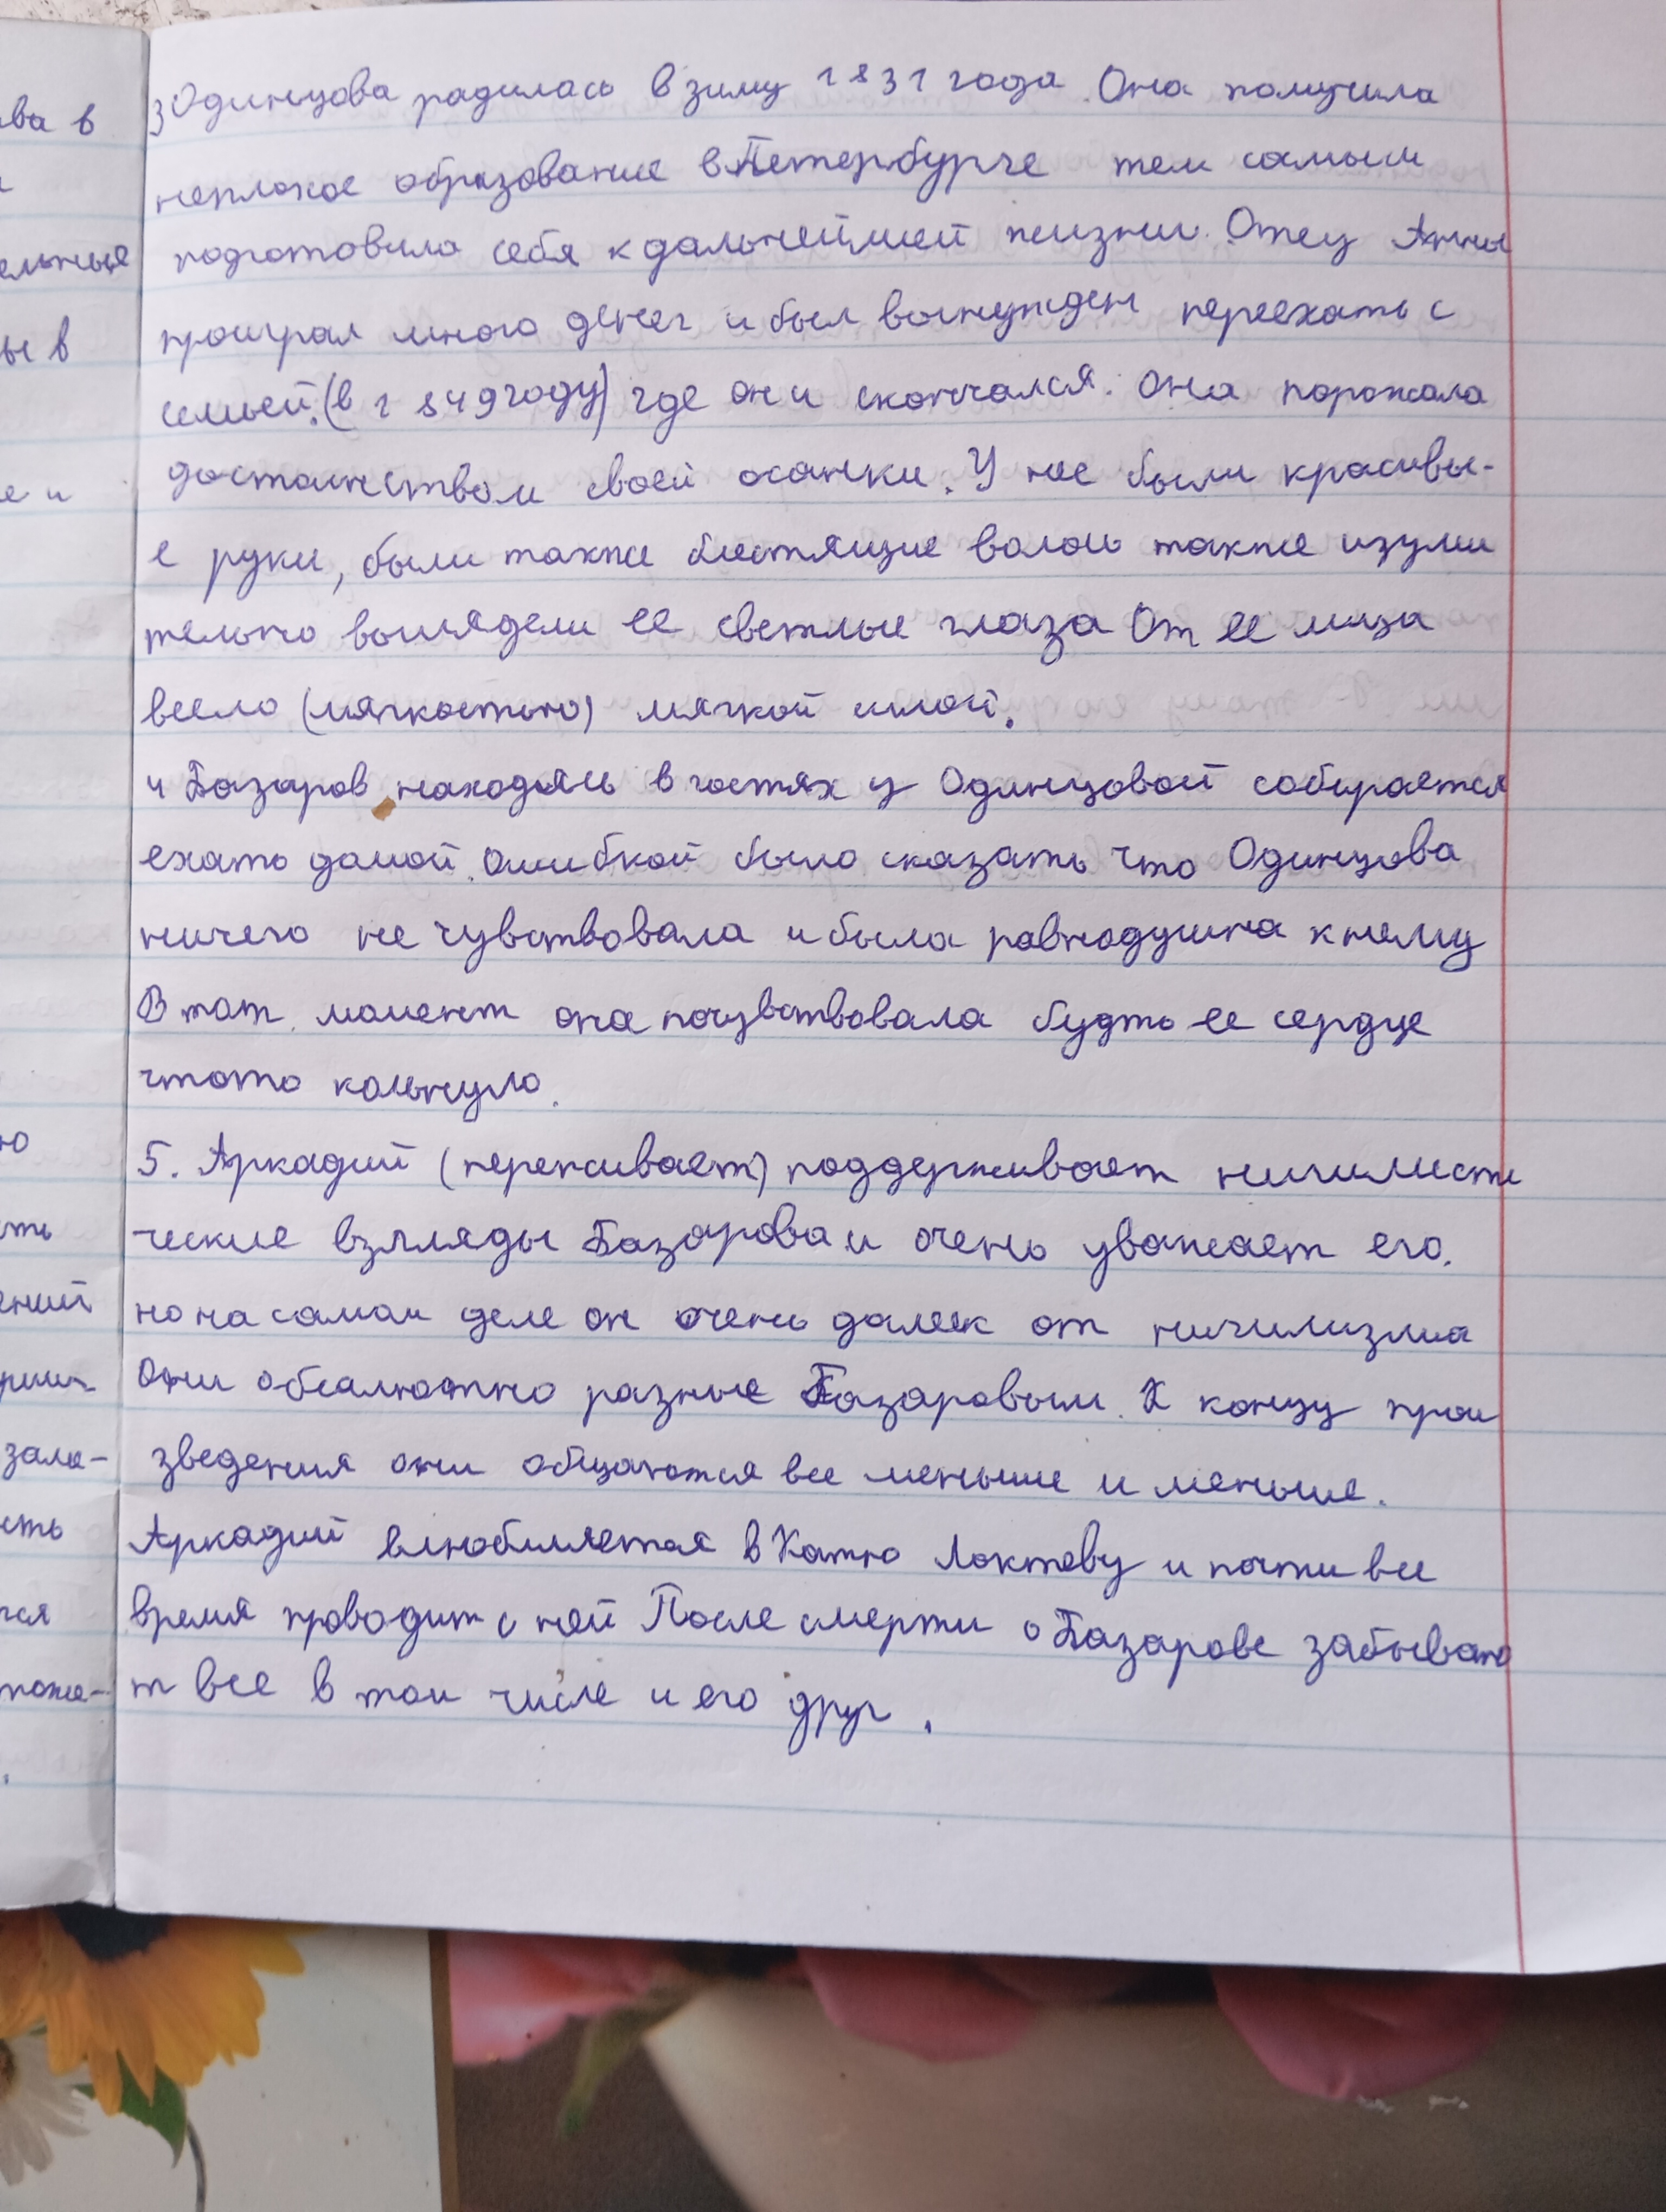 ва в
ельные
ы в
е и
ю
ть
ений
зала-
сть
тся
може-
3 Одинцова радилась в зиму 1831 года. Она получила
неплохое образование в Петербурге тем самым
подготовила себя к дальнейшей жизни. Отец Анны
проиграл много денег и был вынужден переехать с
семьей. (в 1849 году) где он и скончался. Она поражала
достаинством своей осанки. У нее были красивы-
е руки, были также блестящие волосы также изуми
тельно выглядели ее светлые глаза От ее лица
веело (мягкостью) мягкой силой.
4 Базаров находясь в гостях у Одинцовой собирается
ехать домой. Ошибкой было сказать что Одинцова
ничего не чувствовала и была равнодушна к нему
В тот момент она почувствовала будть ее сердце
чтото кольнуло.
5. Аркадий (переживает) поддерживает нигилисти
ческие взгляды Базарова и очень уважает его.
но на самом деле он очень далек от нигилизма
Они обсалютно разные Базаровым. К концу прои
зведения они общаются все меньше и меньше.
Аркадий влюбляется в Катю Локтеву и почти все
время проводит с ней После смерти о Базарове забываю
т все в том числе и его друг.